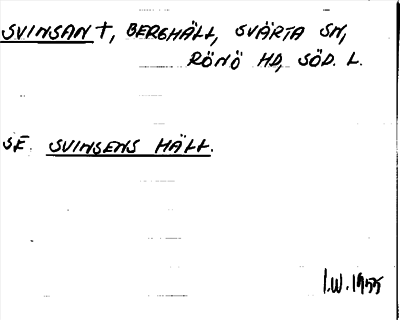 SVINSAN †, BERGHÄLL, SVÄRTA SN,
RÖNÖ HD, SÖD. L.
SE SVINSENS HÄLL.
I.W. 1955